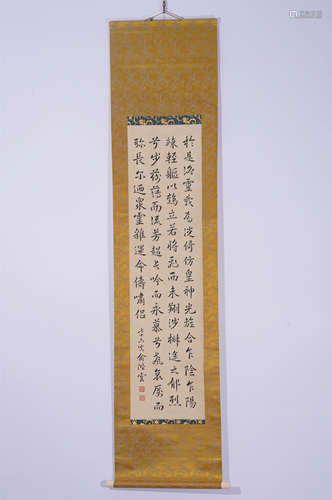 於是洛靈感焉徙倚仿皇神光離合乍陰乍陽
竦輕軀以鶴立若將飛而未翔涉椒途之郁烈
兮步蘅薄而流芳超長吟而永慕兮聲哀厲而
弥長尔迺衆靈雜遝命儔嘯侶
七十六叟俞陛雲